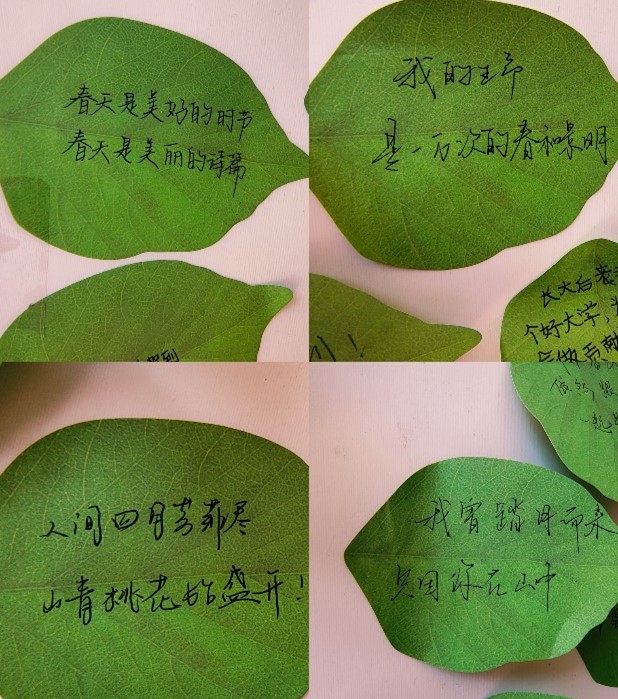 春天是美好的时节
春天是美丽的诗篇
我的生命
是一万次的春和景明
长大后考
个好大学,为
会做贡献
人间四月芳菲尽
山青桃花始盛开!
我曾踏月而来
只因你在山中